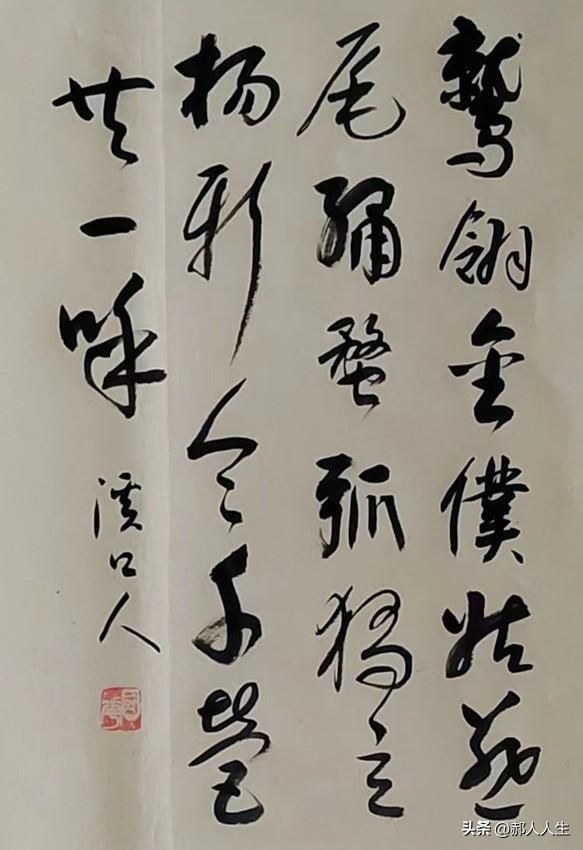 鷲翎金僕姑燕
尾繡蝥弧獨立
揚新令千營
共一呼
溪口人
头条 @郝人人生